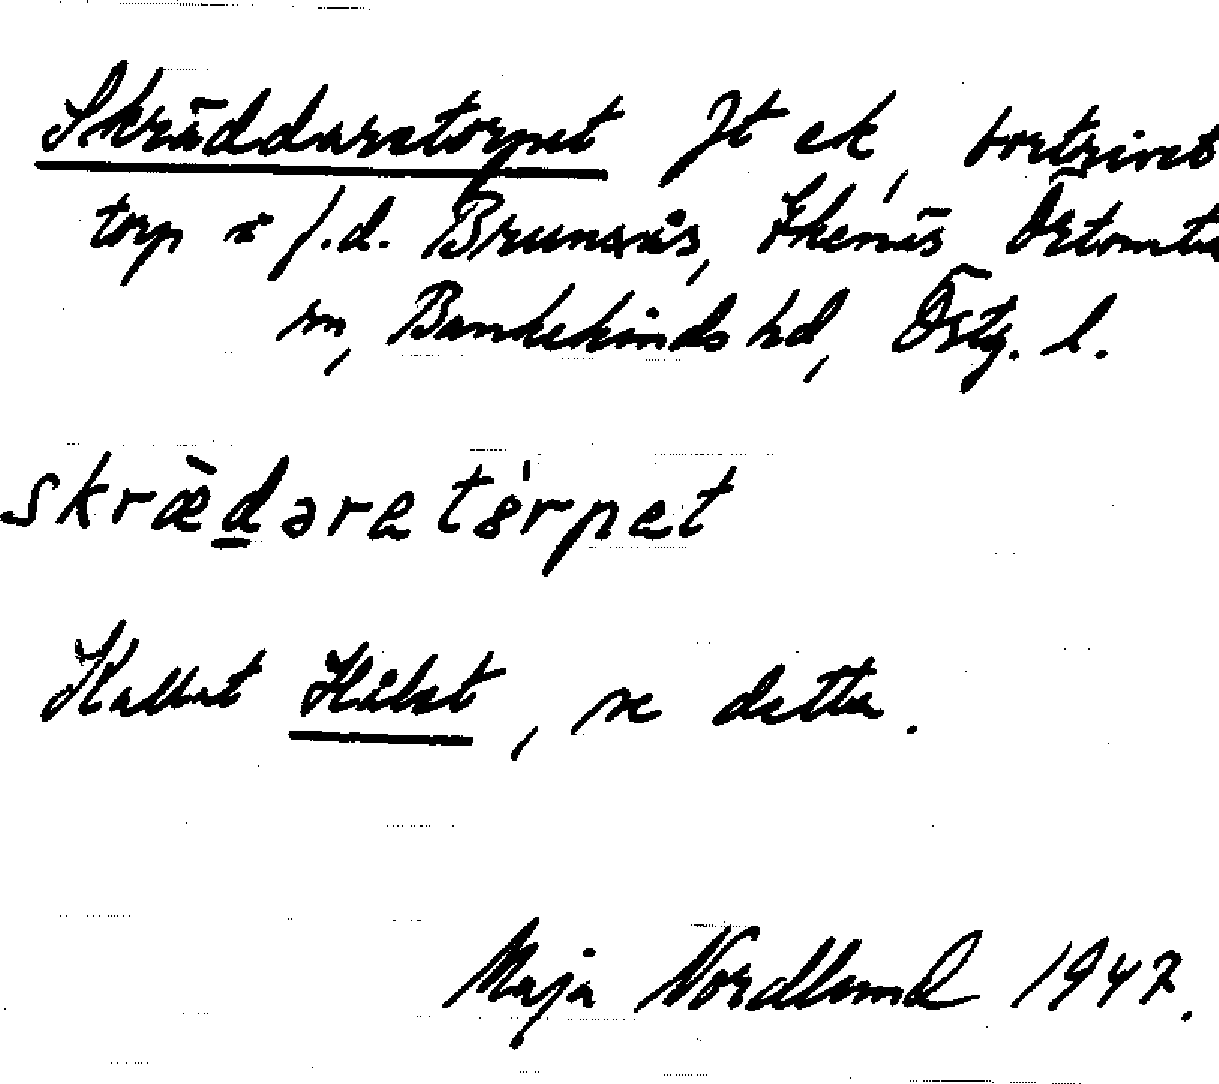 Skräddaretorpet Jt ek, bortrivet
torp i f.d. Brunnås, Ekenäs Örtomta
sn, Bankekinds hd, Östg. l.
skræ̀dəretórpet
Kallat Hålet, se detta.
Maja Nordlund 1947.